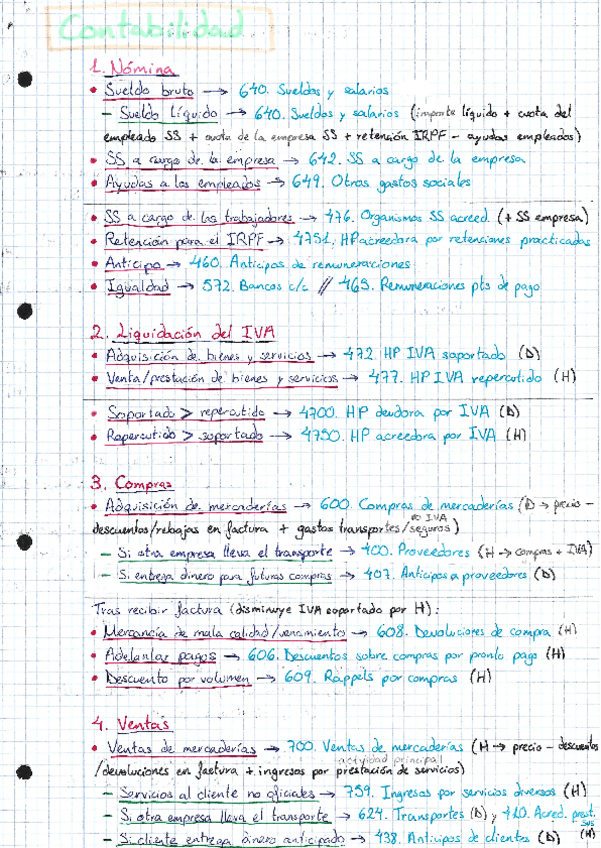 Contabilidad
1. Nómina
• Sueldo bruto → 640. Sueldos y salarios
– Sueldo líquido → 640. Sueldos y salarios (importe líquido + cuota del
empleado SS + cuota de la empresa SS + retención IRPF – ayudas empleados)
• SS a cargo de la empresa → 642. SS a cargo de la empresa
• Ayudas a los empleados → 649. Otros gastos sociales
• SS a cargo de los trabajadores → 476. Organismos SS acreed. (+ SS empresa)
• Retención para el IRPF → 4751. HP acreedora por retenciones practicadas
• Anticipo → 460. Anticipos de remuneraciones
• Igualdad → 572. Bancos c/c // 465. Remuneraciones pts de pago
2. Liquidación del IVA
• Adquisición de bienes y servicios → 472. HP IVA soportado (D)
• Venta/prestación de bienes y servicios → 477. HP IVA repercutido (H)
• Soportado > repercutido → 4700. HP deudora por IVA (D)
• Repercutido > soportado → 4750. HP acreedora por IVA (H)
3. Compras
• Adquisición de mercaderías → 600. Compras de mercaderías (D → precio –
descuentos/rebajas en factura + gastos transportes/seguros no IVA)
– Si otra empresa lleva el transporte → 400. Proveedores (H → compras + IVA)
– Si entrega dinero para futuras compras → 407. Anticipos a proveedores (D)
Tras recibir factura (disminuye IVA soportado por H):
• Mercancía de mala calidad/vencimiento → 608. Devoluciones de compra (H)
• Adelantar pagos → 606. Descuentos sobre compras por pronto pago (H)
• Descuento por volumen → 609. Rappels por compras (H)
4. Ventas
• Ventas de mercaderías → 700. Ventas de mercaderías (H → precio – descuentos
/devoluciones en factura + ingresos por prestación de servicios)
actividad principal
– Servicios al cliente no oficiales → 759. Ingresos por servicios diversos (H)
– Si otra empresa lleva el transporte → 624. Transportes (D) y 410. Acred. prest. svs (H)
– Si cliente entrega dinero anticipado → 438. Anticipos de clientes (D)